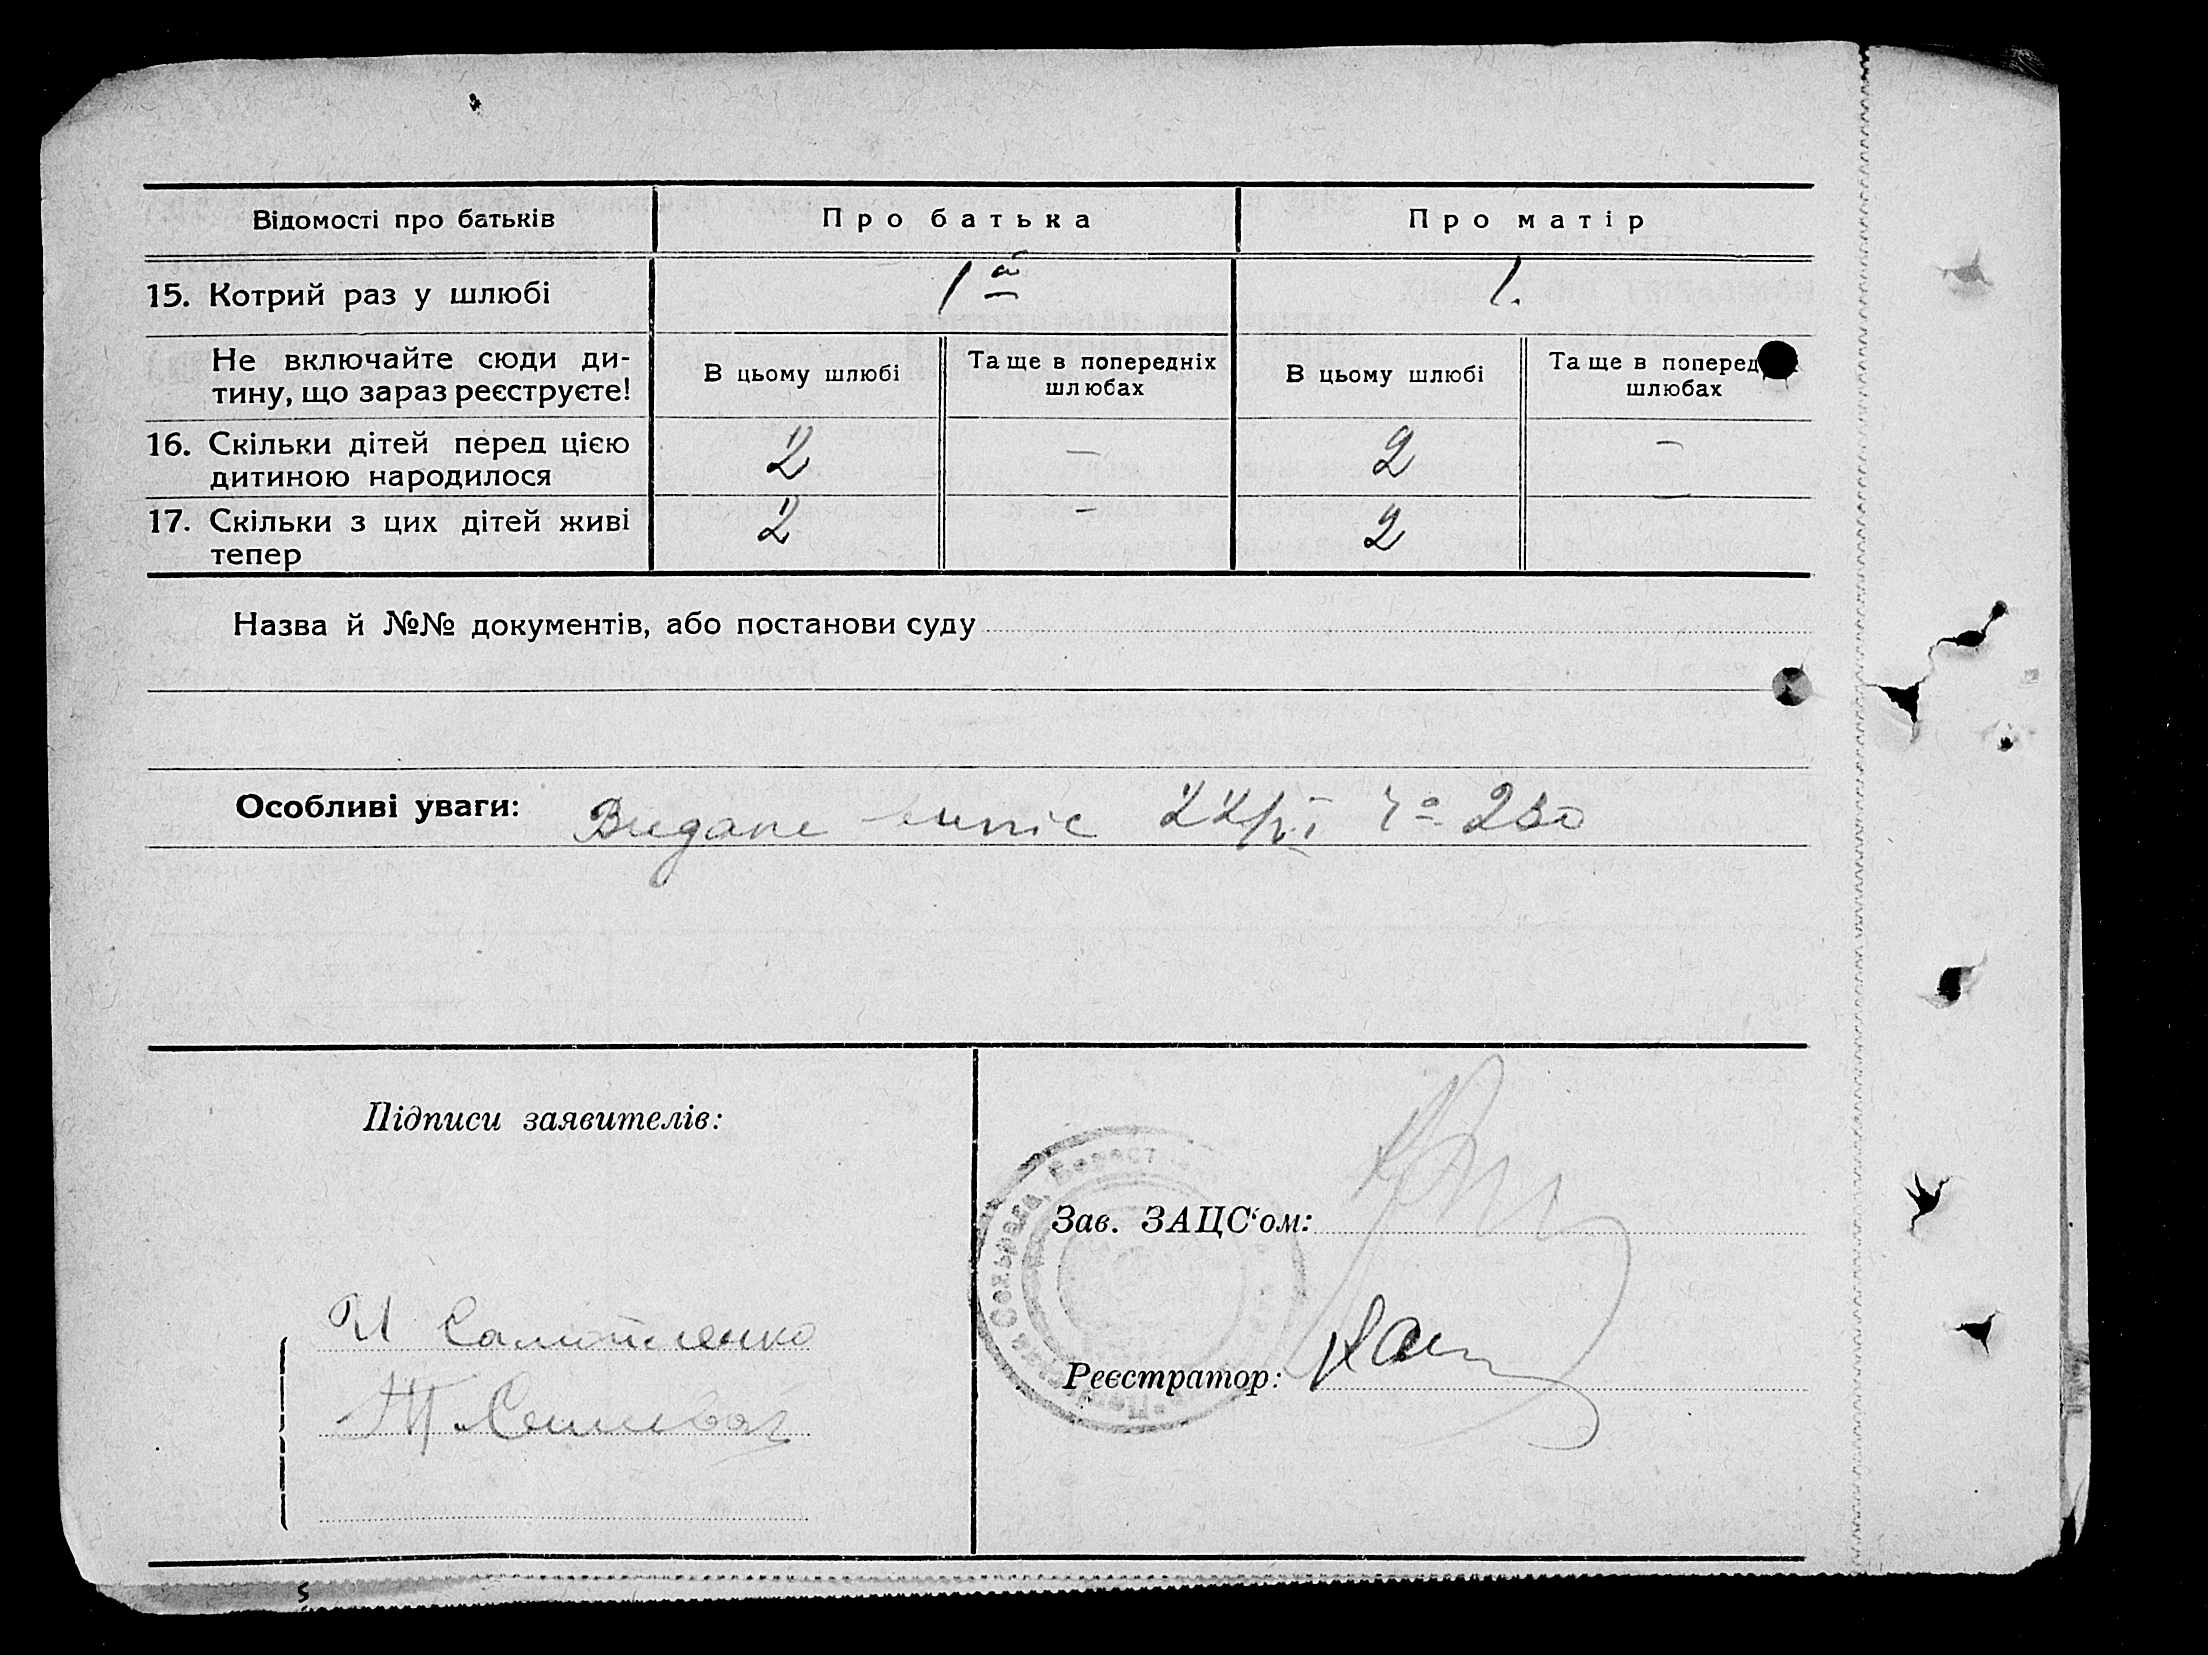 Відомості про батьків
Про батька
Про матір
15. Котрий раз у шлюбі
1й
1.
Не включайте сюди ди-
тину, що зараз реєструєте!
В цьому шлюбі
Та ще в попередніх
шлюбах
В цьому шлюбі
Та ще в поперед
шлюбах
16. Скільки дітей перед цією
дитиною народилося
2
–
2
–
17. Скільки з цих дітей живі
тепер
2
–
2
Назва й №№ документів, або постанови суду
Особливі уваги: Видане 22/VI 230
Підписи заявителів:
Зав. ЗАЦС‘ом:
Реєстратор: